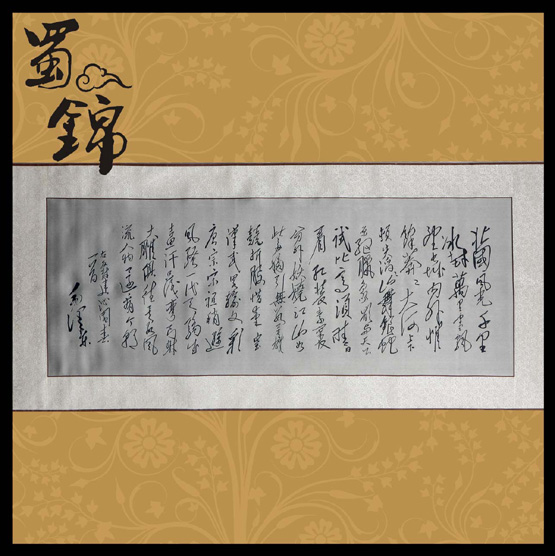 蜀
錦
北國風光千里
冰封萬里雪飄
望長城內外惟
餘莽莽大河上下
頓失滔滔山舞銀蛇
原馳臘象欲與天公
試比高須晴日
看紅裝素裹
分外妖嬈江山如
此多嬌引無數英雄
競折腰惜秦皇
漢武略輸文彩
唐宗宋祖稍遜
風騷一代天驕成吉
思汗只識彎弓射
大鵰俱往矣數風
流人物還看今朝
沁園春
一首
毛澤東